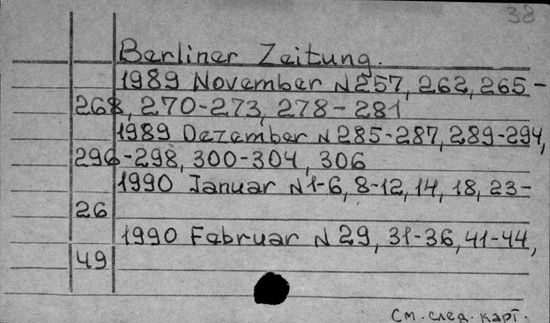 38
Berliner Zeitung.
1989 November N257, 262, 265-
268, 270-273, 278-281
1989 Dezember N285-287, 289-294,
296-298, 300-304, 306
1990 Januar N1-6, 8-12, 14, 18, 23-
26
1990 Februar N29, 31-36, 41-44,
49
См. след. карт.